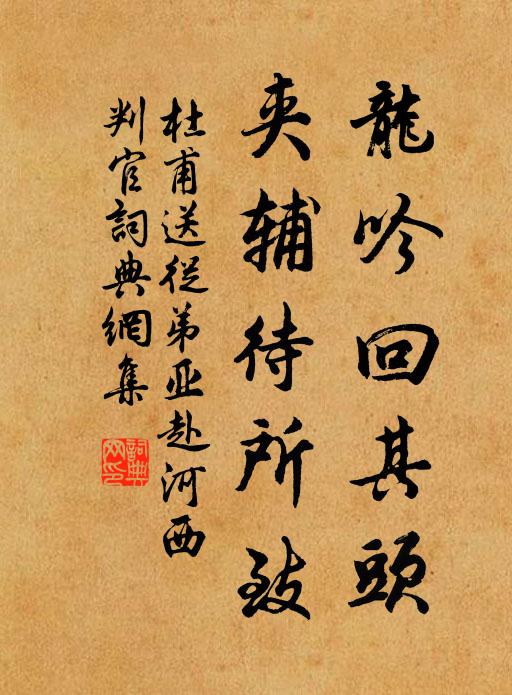 龍吟回其頭
夾辅待所致
杜甫送從弟亚赴河西
判官詞典網集
詞典网印